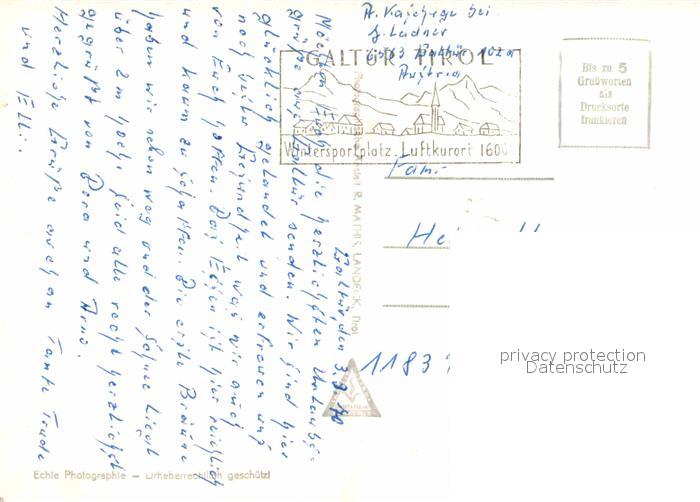 A. Kajchege bei
J. Ladner
Galtür 102a
Austria
GALTÜR TIROL
Wintersportplatz Luftkurort 1600
Bis zu 5
Grußworten
als
Drucksorte
frankieren
Fam.
He
1183
privacy protection
Datenschutz
R. MATHIS, LANDECK, Tirol
Galtür, den 3.3.70
Möchten Euch die herzlichsten Urlaubs-
grüße aus Galtür senden. Wir sind hier
glücklich gelandet und erfreuen uns
noch guter Gesundheit was wir auch
von Euch hoffen. Das Essen ist hier reichlich
und kaum zu schaffen. Die erste Bräune
haben wir schon weg und der Schnee liegt
über 2 m hoch. Seid alle recht herzlichst
gegrüßt von Dora und Arno.
Herzliche Grüße auch an Tante Trude
und Elli.
Echte Photographie – Urheberrechtlich geschützt